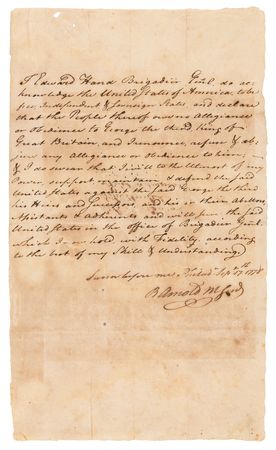 I Edward Hand Brigadier Genl. do ac-
knowledge the United States of America, to be
free, Independent & Sovereign States, and declare
that the People thereof owe no Allegiance
or Obedience to George the third, King of
Great Britain, and I renounce, refuse & ab-
jure any Allegiance or Obedience to him,
& I do swear that I will to the utmost of my
Power, support, maintain & defend the said
United States against the said George the third
his Heirs and Successors and his or their Abettors,
Assistants & adherents and will serve the said
United States in the office of Brigadier Genl.
which I now hold with Fidelity, according
to the best of my Skill & Understanding
Sworn before me 1778
B Arnold M Genl